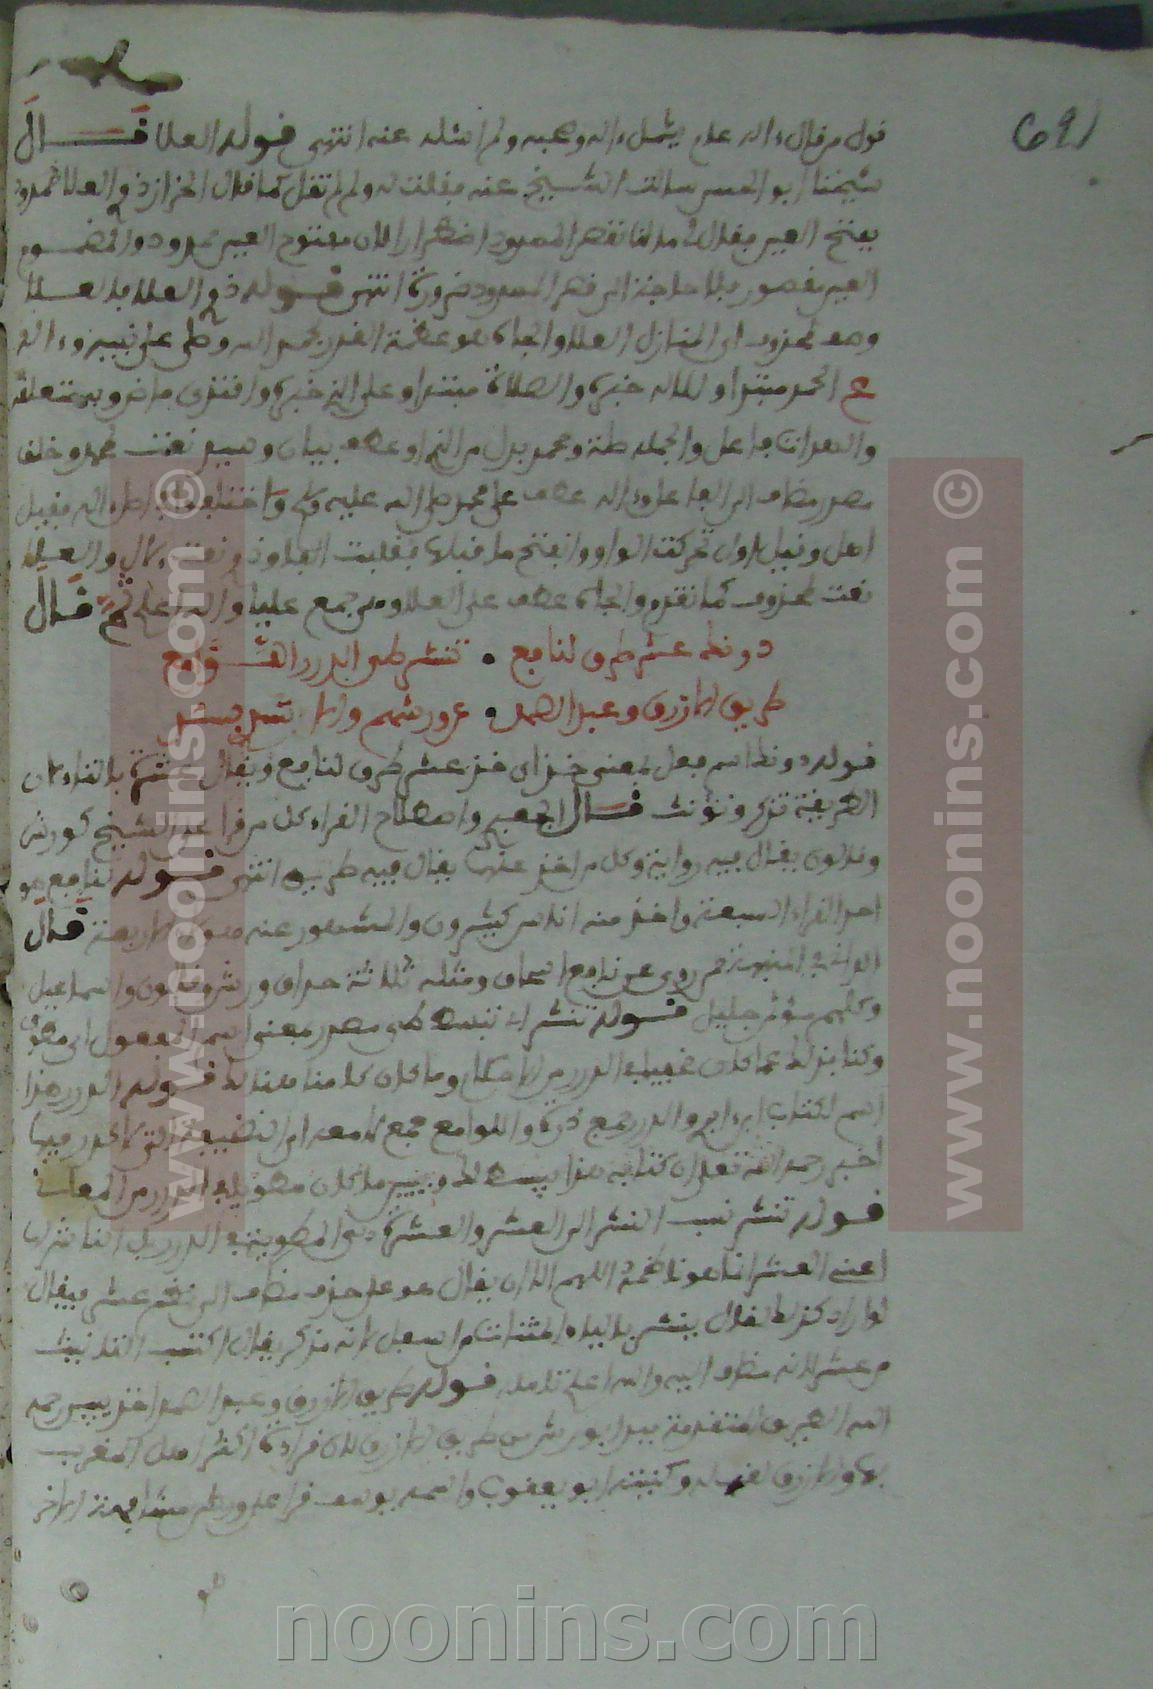 قول من قال ءاله علم يشمل ءاله وصحبه ولم اسئله عنه انتهى قوله العلا قال
شيخنا ابو الحسن سالت الشيخ عنه فقلت له ولم لم تقل كما قال الخراز ذو العلا ممدود
بفتح العين فقال لي ما لنا نقصر الممدود اضطرارا لان مفتوح العين ممدود والمضموم
العين مقصور فلا حاجة الى قصر الممدود ضرورة انتهى قوله ذو العلا
وصف لمحذوف اى المنازل العلا والجاه هو عظمة القدر محمد الله وصلى على نبيه وءاله
ع الحمد مبتدا ولله خبره والصلاة مبتدا وعلى النبي خبره واقتدى ماض وبه متعلق
والهداة فاعل والجملة صلة ومحمد بدل من النبي او عطف بيان وسيد نعت لمحمد وخلق
مصدر مضاف الى الفاعل وءاله عطف على محمد صلى الله عليه وسلم واختلف في اصل ءاله فقيل
اهل وقيل اول تحركت الواو وانفتح ما قبلها فقلبت الفا وذو نعت ءال والعلا
نعت لمحذوف كما تقدم والجاه عطف على العلا وهى جمع عليا والله اعلم ثم قال
دونك عشر طرق لنافع • تنشر طى الدرر اللوامع
طريق الازرق وعبد الصمد •
قوله دونك اسم فعل بمعنى خذ اى خذ عشر طرق لنافع ويقال عشرة بالتاء لان
الطريقة تذكر وتؤنث قال الجعبري واصطلاح القراء كل من قرا على الشيخ كورش
وقالون يقال فيه رواية وكل من اخذ عنهما يقال فيه طريق انتهى قوله لنافع هو
احد القراء السبعة واخذ منه اناس كثيرون والمشهور عنه هؤلاء الاربعة قال
الداني في المنبهة ممن روى عن نافع اسحاق ومثله ثلاثة حذاق ورش وقالون واسماعيل
وكلهم مؤثر جليل قوله تنشر اى تبسط طى مصدر بمعنى اسم المفعول اى مطوى
وكنا بذلك عما كان خفيا في الدرر من الاحكام وما كان كامنا هنالك قوله الدرر هذا
اسم لكتاب ابن بري والدرر جمع درة واللوامع جمع لامعة اى النفيسة التي لا كدر فيها
اخبر رحمه الله تعلى ان كتابه هذا يبسط لك ويبين ما كان مطويا في الدرر من المعانى
قوله تنشر نسب النشر الى العشر والعشرة هى المطوية في الدرر بل الناشر لها
اعنى العشر انما هو ناظمه اللهم الا ان يقال هو على حذف مضاف اى نظم عشر فيقال
لو اراد كذلك لقال ينشر بالياء المثناة من اسفل لانه مذكر يقال اكتسب التانيث
من عشر لانه مضاف اليه والله اعلم تامله قوله طريق الازرق وعبد الصمد اخذ يبين رحمه
الله الطريق المتقدمة فبدا بورش من طريق الازرق لان قراءة اكثر اهل المغرب
بها والازرق لقب له وكنيته ابو يعقوب واسمه يوسف قرا على ورش مشافهة الاخر
169
© www.noonins.com
© www.noonins.com
noonins.com